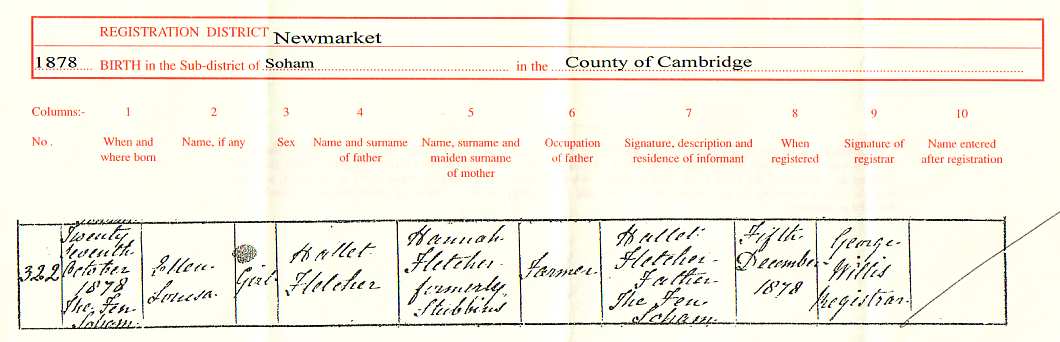 REGISTRATION DISTRICT Newmarket
1878 BIRTH in the Sub-district of Soham in the County of Cambridge
Columns:- 1 2 3 4 5 6 7 8 9 10
No. When and where born Name, if any Sex Name and surname of father Name, surname and maiden surname of mother Occupation of father Signature, description and residence of informant When registered Signature of registrar Name entered after registration
322
Twenty
seventh
October
1878
The Fen
Soham
Ellen
Louisa
Girl
Hallet
Fletcher
Hannah
Fletcher
formerly
Stubbins
Farmer
Hallet
Fletcher
Father
The Fen
Soham
Fifth
December
1878
George
Willis
Registrar